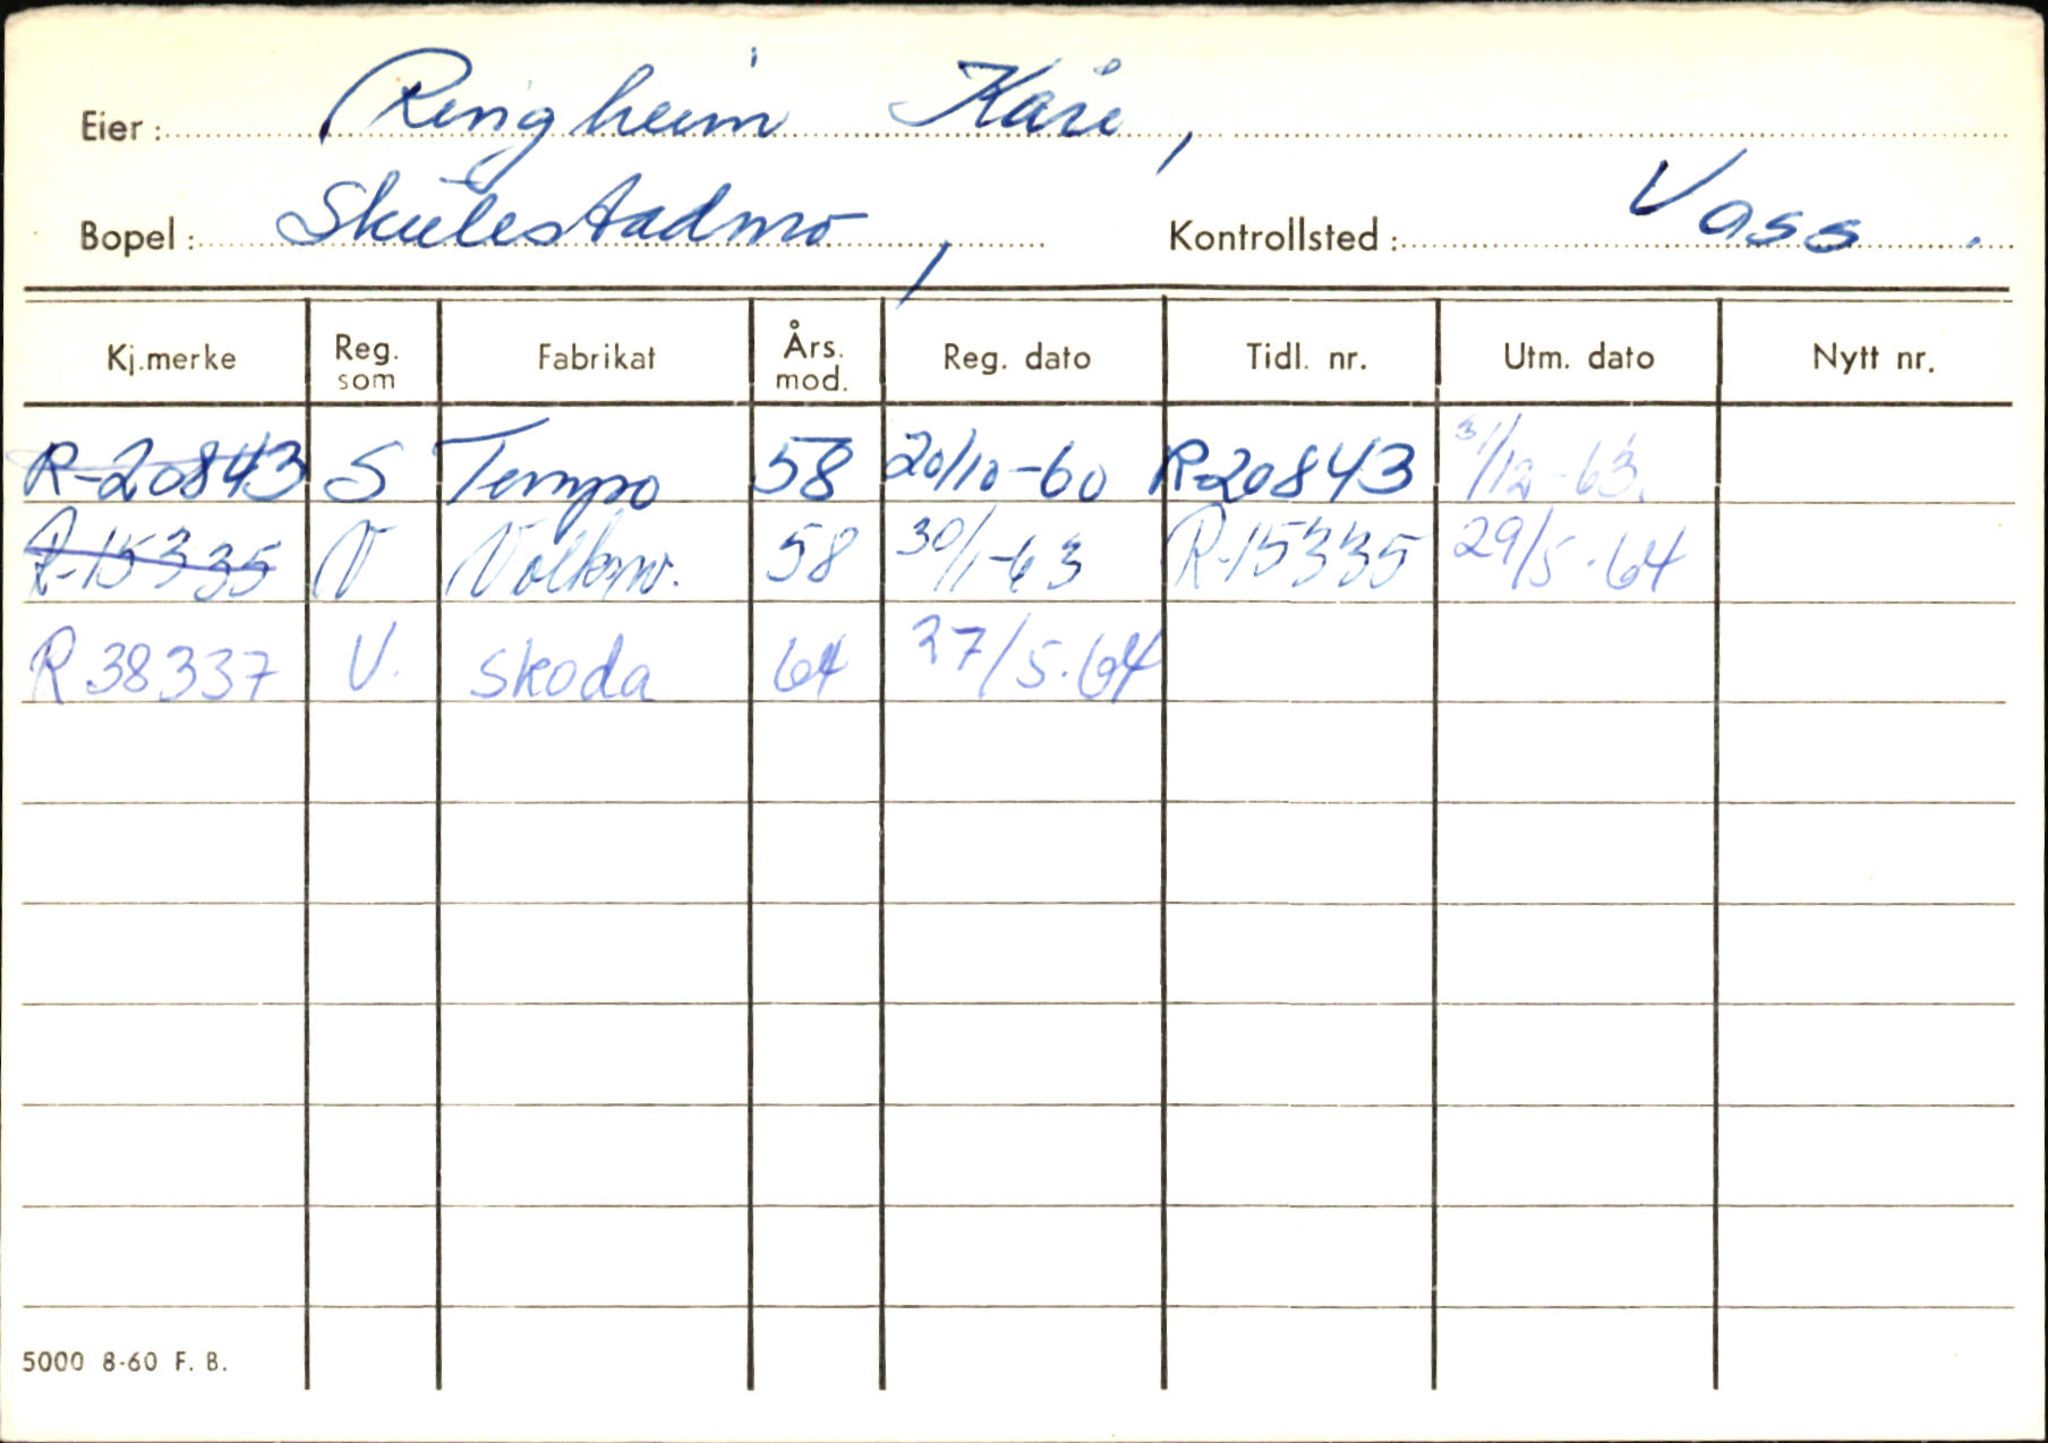 Eier: Ringheim Kåre,
Bopel: Skulestadmo, Kontrollsted: Voss.
Kj.merke Reg. som Fabrikat Års. mod. Reg. dato Tidl. nr. Utm. dato Nytt nr.
R-20843 S Tempo 58 20/10-60 R-20843 31/12-63.
R-15335 V Volksw. 58 30/1-63 R-15335 29/5.64
R 38337 V. Skoda 64 27/5.64
5000 8-60 F. B.